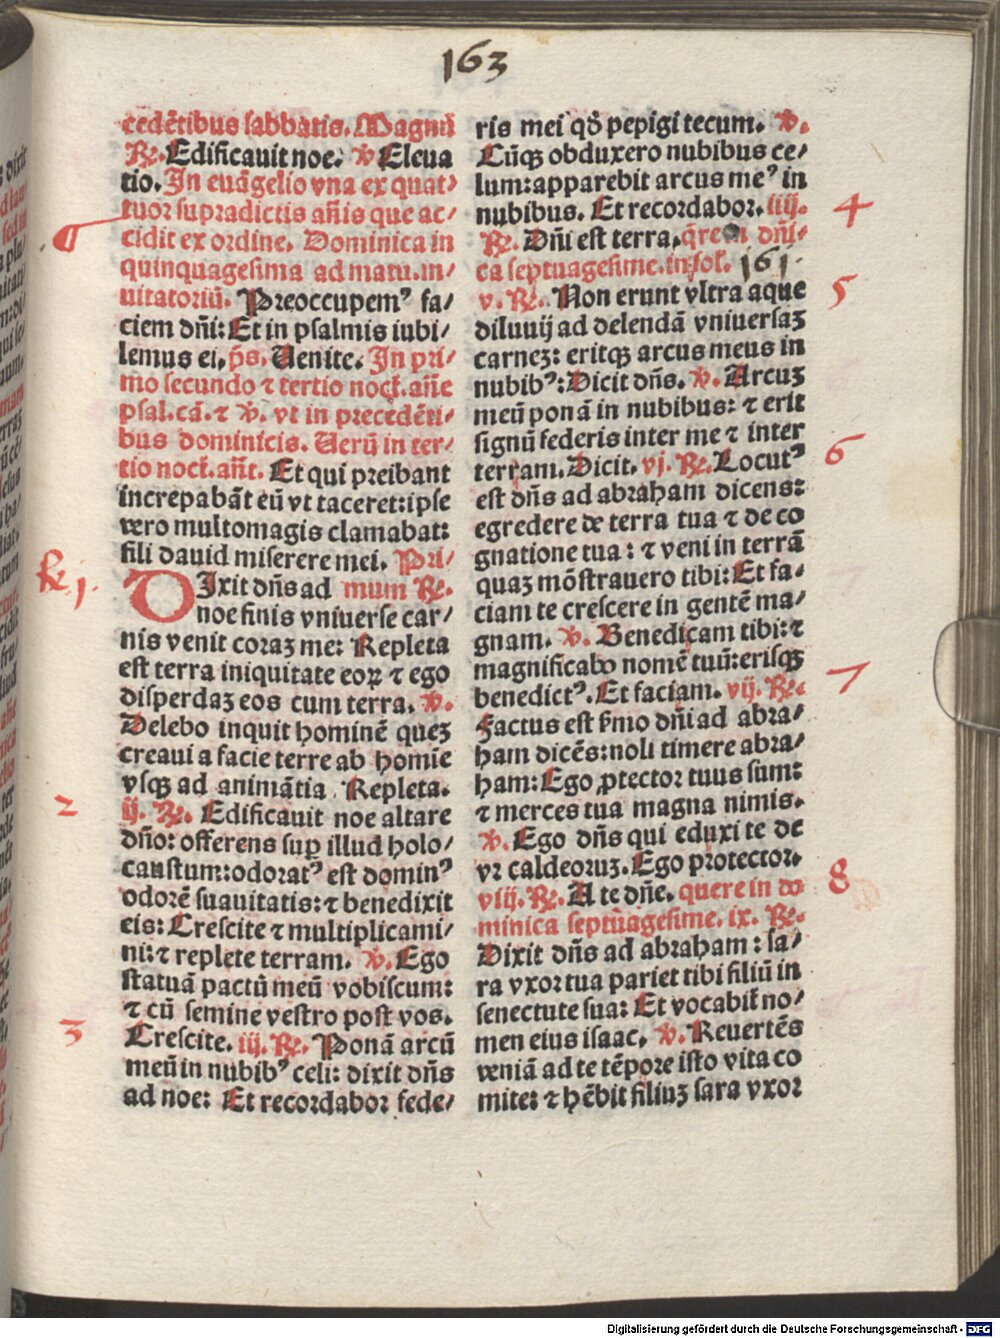 163
cedētibus sabbatis. Magnū
R. Edificauit noe. v Eleua
tio. In euāgelio vna ex quat⸗
tuor supradictis añis que ac⸗
cidit ex ordine. Dominica in
quinquagesima ad matu. in⸗
uitatoriū. Preoccupemꝰ fa⸗
ciem dñi: Et in psalmis iubi⸗
lemus ei, p̄s. Uenite. In pri⸗
mo secundo ⁊ tertio noct. añe
psal. cā. ⁊ v. vt in precedēti⸗
bus dominicis. Uerū in ter⸗
tio noct. añt. Et qui preibant
increpabāt eū vt taceret: ipse
vero multomagis clamabat:
fili dauid miserere mei. Pri⸗
R. 1.
DIxit dñs ad mum R.
noe finis vniuerse car⸗
nis venit coraꝫ me: Repleta
est terra iniquitate eoꝝ ⁊ ego
disperdaꝫ eos cum terra. v.
Delebo inquit hominē queꝫ
creaui a facie terre ab homīe
vsqꝫ ad animātia. Repleta.
2
ij. R. Edificauit noe altare
dño: offerens suꝑ illud holo⸗
caustum: odoratꝰ est dominꝰ
odorē suauitatis: ⁊ benedixit
eis: Crescite ⁊ multiplicami⸗
ni: ⁊ replete terram. v. Ego
statuā pactū meū vobiscum:
⁊ cū semine vestro post vos.
3
Crescite. iij. R. Ponā arcū
meū in nubibꝰ celi: dixit dñs
ad noe: Et recordabor fede⸗
ris mei qđ pepigi tecum. v.
Cūqꝫ obduxero nubibus ce⸗
lum: apparebit arcus meꝰ in
nubibus. Et recordabor. iiij.
4
R. Dñi est terra. q̄re in dñi⸗
ca septuagesime. in fol. 161.
v. R. Non erunt vltra aque
5
diluuij ad delendā vniuersaꝫ
carneꝫ: eritqꝫ arcus meus in
nubibꝰ: Dicit dñs. v. Arcuꝫ
meū ponā in nubibus: ⁊ erit
signū federis inter me ⁊ inter
terram. Dicit. vj. R. Locutꝰ
6
est dñs ad abraham dicens:
egredere de terra tua ⁊ de co
gnatione tua: ⁊ veni in terrā
quaꝫ mōstrauero tibi: Et fa⸗
ciam te crescere in gentē ma⸗
gnam. v. Benedicam tibi: ⁊
magnificabo nomē tuū: erisqꝫ
benedictꝰ. Et faciam. vij. R.
7
Factus est s̄mo dñi ad abra⸗
ham dicēs: noli timere abra⸗
ham: Ego ꝓtector tuus sum:
⁊ merces tua magna nimis.
v. Ego dñs qui eduxi te de
vr caldeoruꝫ. Ego protector.
viij. R. A te dñe. quere in do
8
minica septuagesime. ix. R.
Dixit dñs ad abraham: sa⸗
ra vxor tua pariet tibi filiū in
senectute sua: Et vocabit no⸗
men eius isaac. v. Reuertēs
veniā ad te tēpore isto vita co
mite: ⁊ hēbit filiuꝫ sara vxor
Digitalisierung gefördert durch die Deutsche Forschungsgemeinschaft - DFG